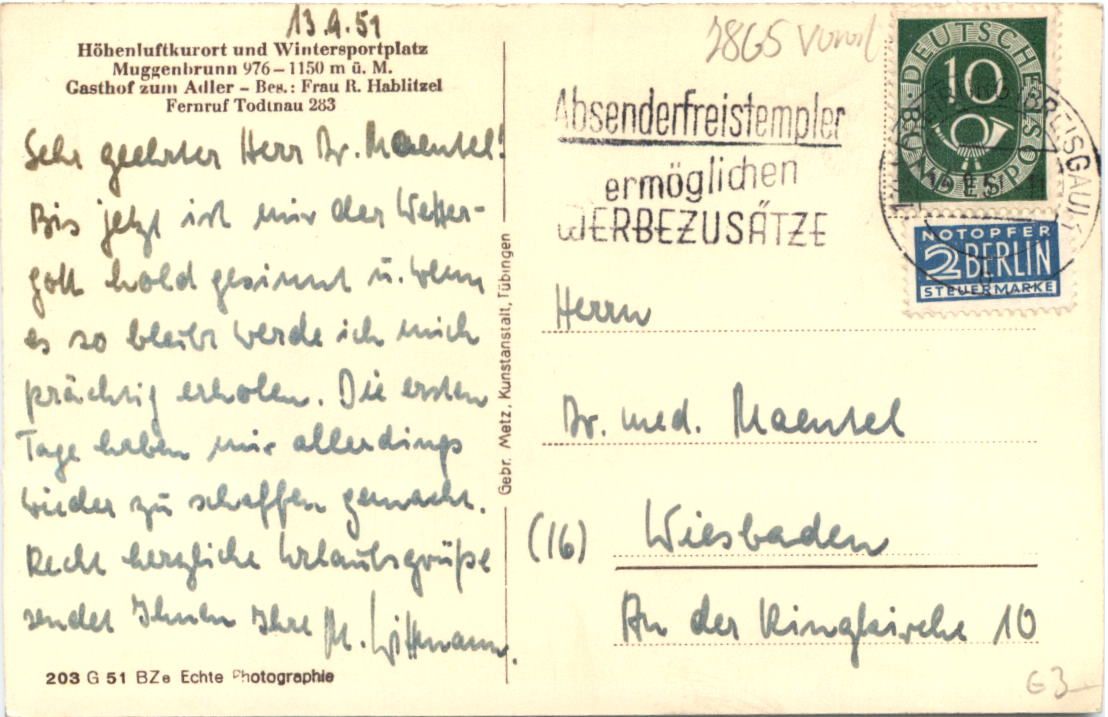 13.9.51
Höhenluftkurort und Wintersportplatz
Muggenbrunn 976–1150 m ü. M.
Gasthof zum Adler – Bes.: Frau R. Hablitzel
Fernruf Todtnau 283
Sehr geehrter Herr Dr. Maentel!
Bis jetzt ist mir der Wetter-
gott hold gesinnt u. wenn
es so bleibt werde ich mich
prächtig erholen. Die ersten
Tage haben mir allerdings
wieder zu schaffen gemacht.
Recht herzliche Urlaubsgrüße
sendet Ihnen Ihre M. Wittmann.
203 G 51 BZe Echte Photographie
Gebr. Metz, Kunstanstalt, Tübingen
2865
Absenderfreistempler
ermöglichen
WERBEZUSÄTZE
DEUTSCHE BUNDESPOST
10
BREISGAU
NOTOPFER
2 BERLIN
STEUERMARKE
Herrn
Dr. med. Maentel
(16) Wiesbaden
An der Ringkirche 10
G3